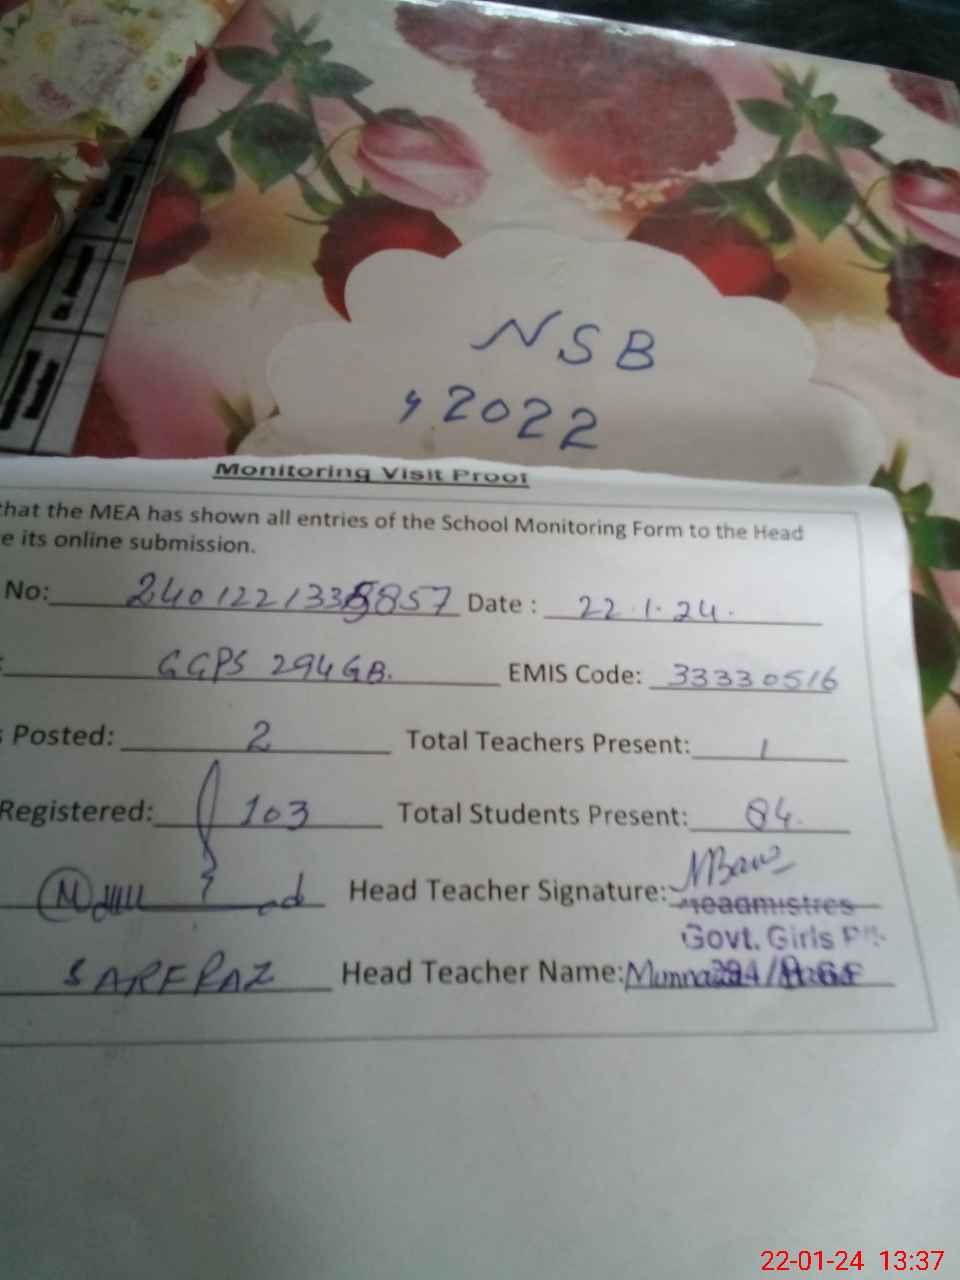 NSB
2022
Monitoring Visit Proof
that the MEA has shown all entries of the School Monitoring Form to the Head
e its online submission.
No: 2401221338857 Date : 22.1.24.
GGPS 294 GB. EMIS Code: 33330516
Posted: 2 Total Teachers Present: 1
Registered: 103 Total Students Present: 84.
Head Teacher Signature:
Headmistres
Govt. Girls
SARFRAZ Head Teacher Name:
22-01-24 13:37